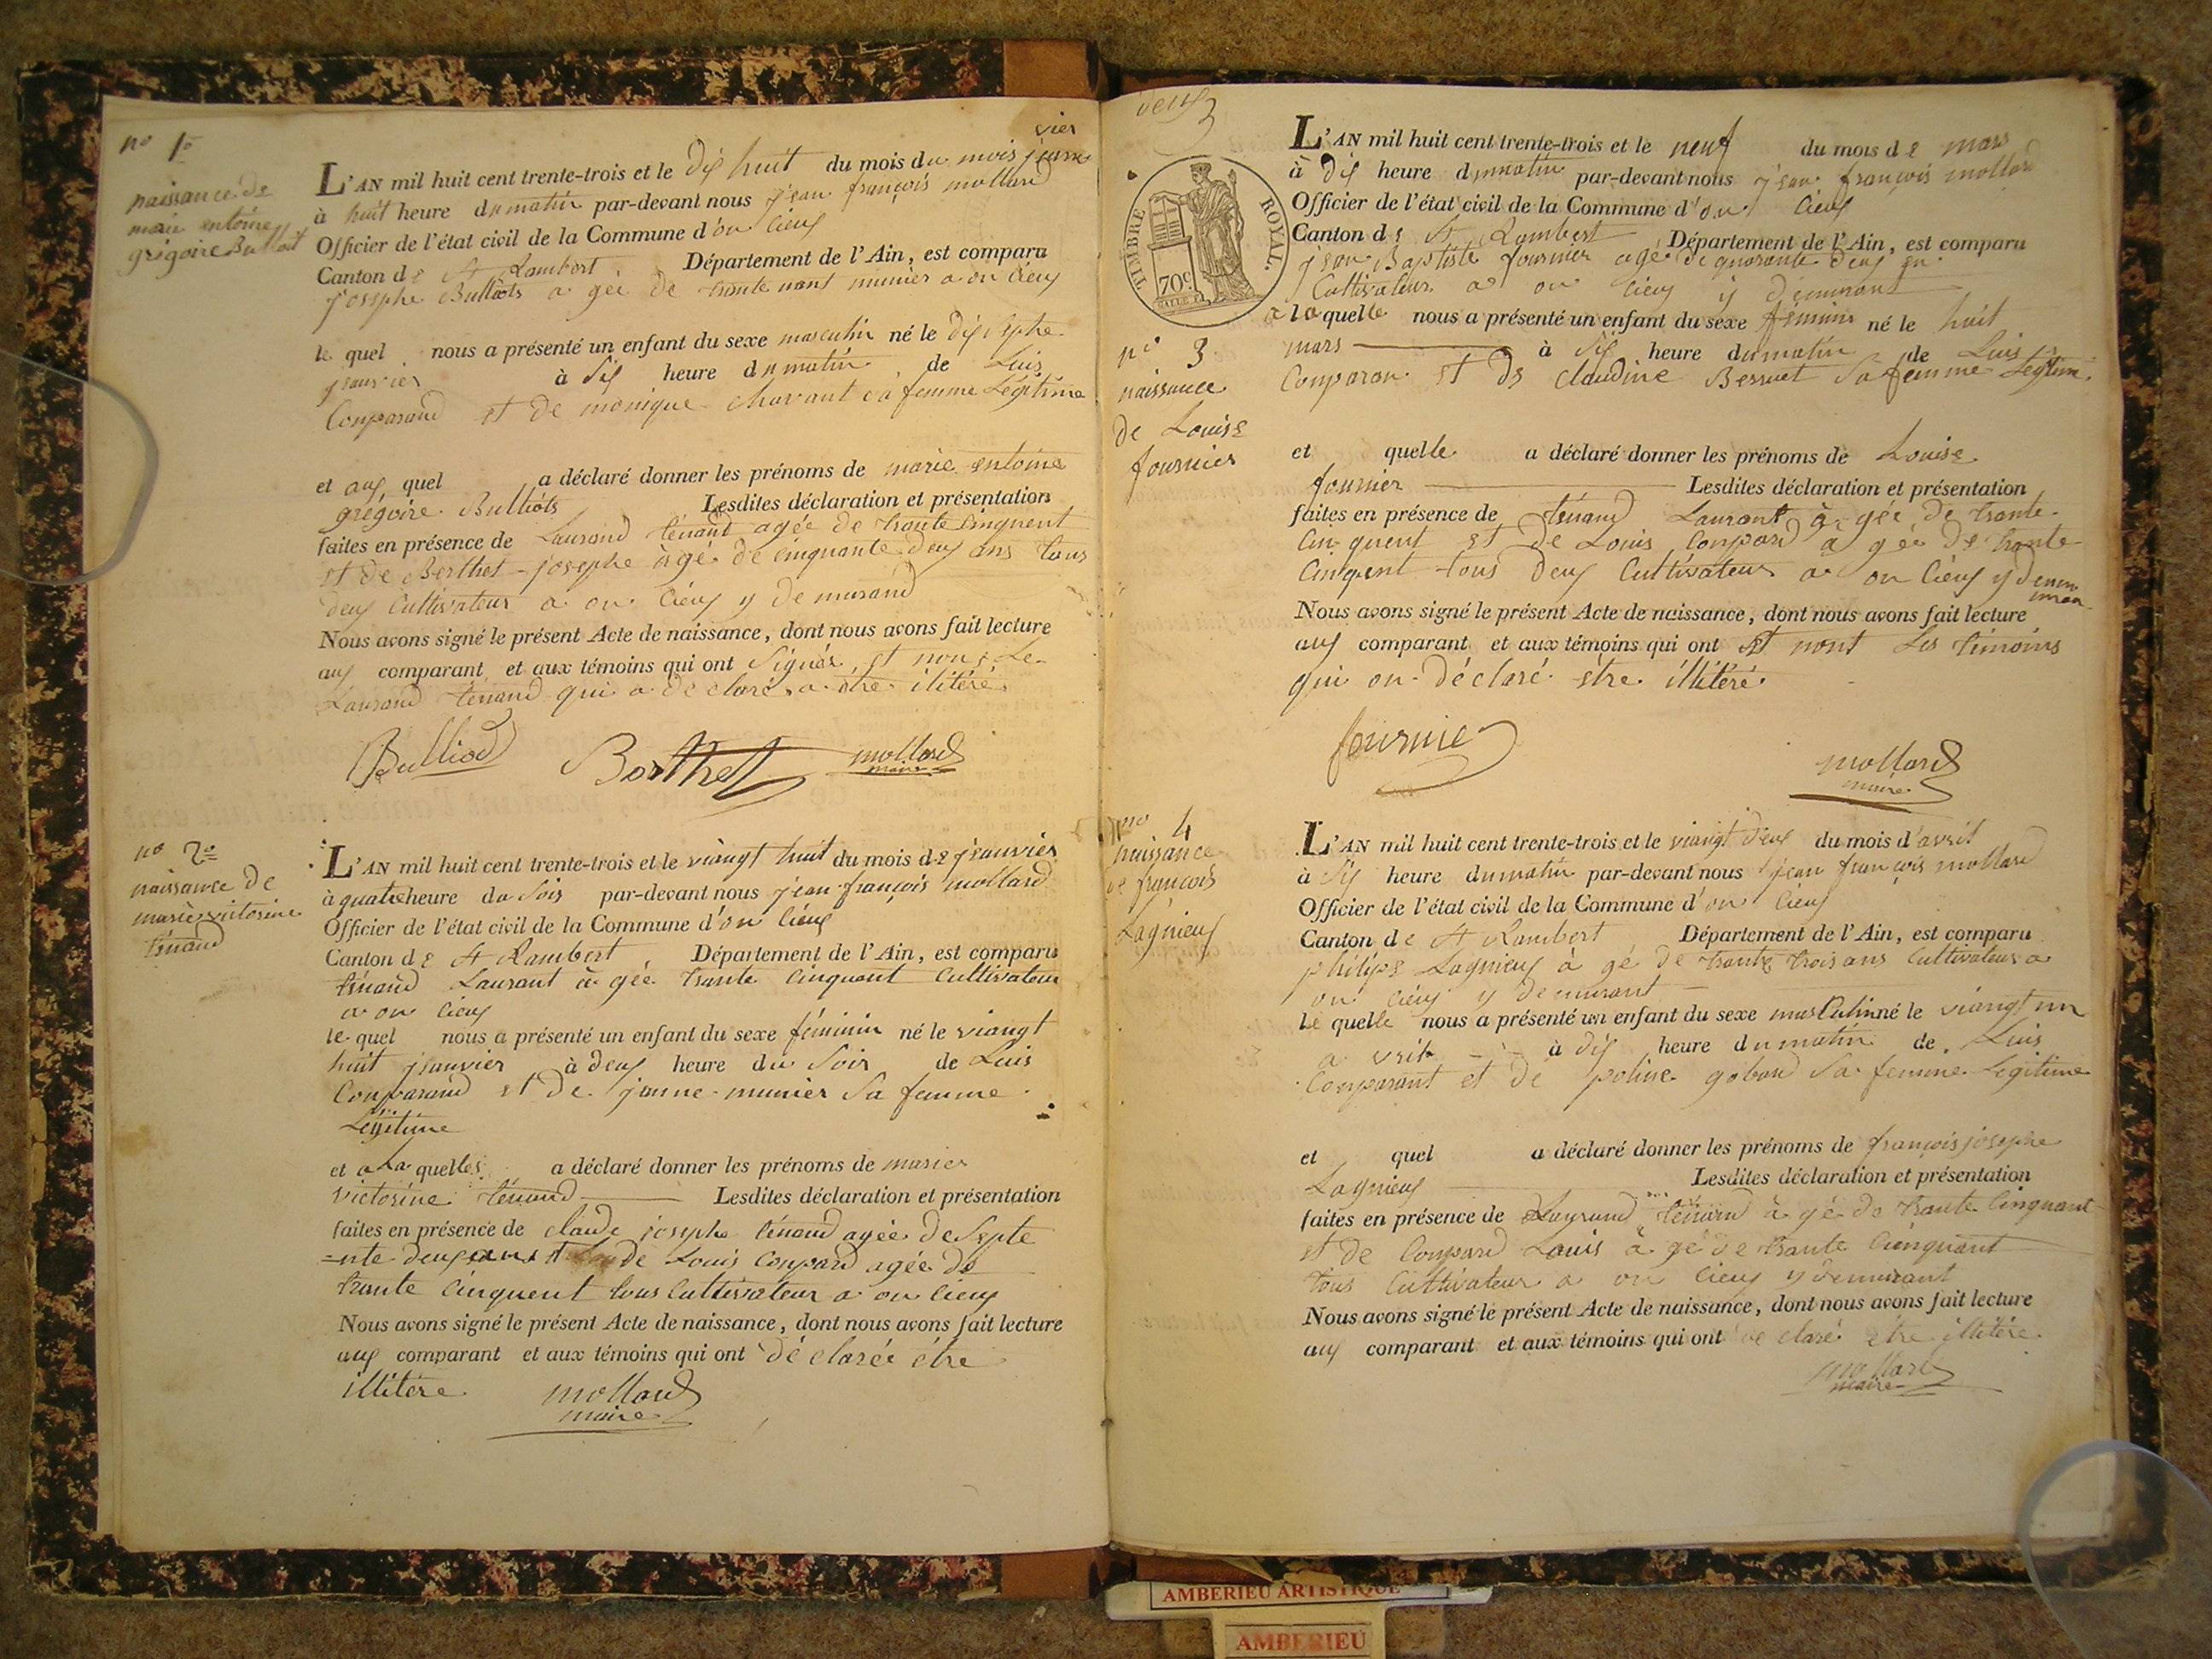 vier
no 1o
naissance de
marie entoine
grégoire Bulliot
L'AN mil huit cent trente-trois et le dix huit du mois du mois janvier
à huit heure du matin par-devant nous jean françois mollard
Officier de l'état civil de la Commune d'on cieux
Canton de St Rambert Département de l'Ain, est comparu
josephe Bulliots a gée de trante nant munier a on cieux
le quel nous a présenté un enfant du sexe masculin né le dix septhe
janvier à six heure du matin de Luis
Comparand et de monique chavant ca femme Légitime
et aux quel a déclaré donner les prénoms de marie entoine
grégoire Bulliots Lesdites déclaration et présentation
faites en présence de Laurand ténant agée de trante Cinquent
et de Berthet-josephe agé de cinquante deux ans tous
deux Cultivateur a on cieux y demurand
Nous avons signé le présent Acte de naissance, dont nous avons fait lecture
aux comparant et aux témoins qui ont Signés et non Le
Laurand ténand qui a de claré a être ilitéré
Bulliod Berthet mollard
maire
no 2o
naissance de
marie victorine
ténand
L'AN mil huit cent trente-trois et le viangt huit du mois de jeanvier
à quatre heure du Soir par-devant nous jean françois mollard
Officier de l'état civil de la Commune d'on cieux
Canton de St Rambert Département de l'Ain, est comparu
ténand Laurant à gée trante Cinquant Cultivateur
a on cieux
le quel nous a présenté un enfant du sexe féminin né le viangt
huit jeanvier à deux heure du Soir de Luis
Comparand et de janne munier Sa femme
Légitime
et a la quelles a déclaré donner les prénoms de maries
victorine ténand Lesdites déclaration et présentation
faites en présence de claude josephe ténand agée de Septe
=nte deux ans et de Louis Conpard agée de
trante Cinquent tous Cultivateur a on cieux
Nous avons signé le présent Acte de naissance, dont nous avons fait lecture
aux comparant et aux témoins qui ont déclarée être
illitére mollard
maire
deux
TIMBRE ROYAL.
70c
no 3
naissance
de Louise
fournier
L'AN mil huit cent trente-trois et le neuf du mois de mars
à dix heure du matin par-devant nous jean françois mollard
Officier de l'état civil de la Commune d'on cieux
Canton de St Rambert Département de l'Ain, est comparu
jean Baptiste fournier agé de quarante deux an
Cultivateur a on cieux y demurant
a la quelle nous a présenté un enfant du sexe féminin né le huit
mars à six heure du matin de Luis
Conparan et de claudine Berruet Sa femme Légitime
et quelle a déclaré donner les prénoms de Louise
fournier Lesdites déclaration et présentation
faites en présence de ténand Laurant a gée de trante
Cinquent et de Louis Conpard a gée de trante
Cinquent tous deux Cultivateur a on cieux y demu
Nous avons signé le présent Acte de naissance, dont nous avons fait lecture
aux comparant et aux témoins qui ont et nont Les timoins
qui on déclaré être illitéré
fournie mollard
maire
no 4
naissance
de françois
Lagnieux
L'AN mil huit cent trente-trois et le viangt deux du mois d'avrit
à six heure du matin par-devant nous jean françois mollard
Officier de l'état civil de la Commune d'on cieux
Canton de St Rambert Département de l'Ain, est comparu
philipe Lagnieux à gé de trante trois ans Cultivateur a
on cieux y demurant
le quelle nous a présenté un enfant du sexe masculin né le viangt un
a vrit à dix heure du matin de Luis
Comparant et de poline goband Sa femme Légitime
et quel a déclaré donner les prénoms de françois josephe
Lagnieux Lesdites déclaration et présentation
faites en présence de Laurand ténand à gé de trante Cinquant
et de Conpard Louis à gé de trante Cinquant
tous Cultivateur a on cieux y demurant
Nous avons signé le présent Acte de naissance, dont nous avons fait lecture
aux comparant et aux témoins qui ont de claré être illitére
mollard
maire
AMBERIEU ARTISTIQUE
AMBERIEU